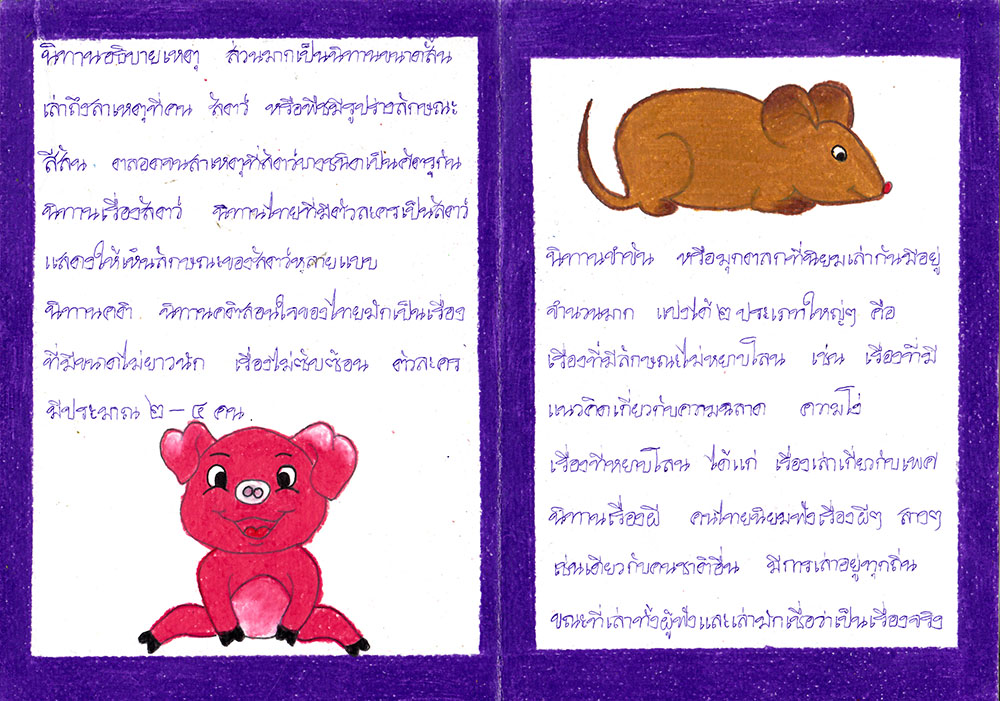 นิทานอธิบายเหตุ ส่วนมากเป็นนิทานขนาดสั้น
เล่าถึงสาเหตุที่คน สัตว์ หรือพืชมีรูปร่างลักษณะ
สีสัน ตลอดจนสาเหตุที่สัตว์บางชนิดเป็นศัตรูกัน
นิทานเรื่องสัตว์ นิทานไทยที่มีตัวละครเป็นสัตว์
แสดงให้เห็นลักษณะของสัตว์หลายแบบ
นิทานคติ นิทานคติสอนใจของไทยมักเป็นเรื่อง
ที่มีขนาดไม่ยาวนัก เรื่องไม่ซับซ้อน ตัวละคร
มีประมาณ ๒ - ๔ คน
นิทานขำขัน หรือมุกตลกที่นิยมเล่ากันมีอยู่
จำนวนมาก แบ่งได้ ๒ ประเภทใหญ่ๆ คือ
เรื่องที่มีลักษณะไม่หยาบโลน เช่น เรื่องที่มี
แนวคิดเกี่ยวกับความฉลาด ความโง่
เรื่องที่หยาบโลน ได้แก่ เรื่องเล่าเกี่ยวกับเพศ
นิทานเรื่องผี คนไทยนิยมฟังเรื่องผีๆ สางๆ
เช่นเดียวกับคนชาติอื่น มีการเล่าอยู่ทุกถิ่น
ขณะที่เล่าทั้งผู้ฟังและเล่ามักเชื่อว่าเป็นเรื่องจริง